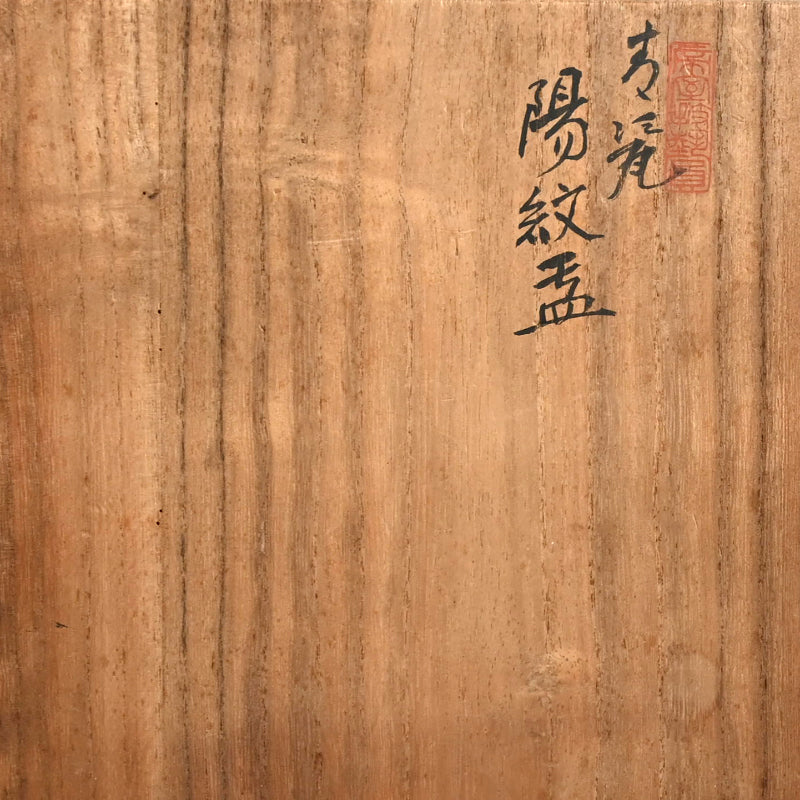 青瓷
陽紋盂